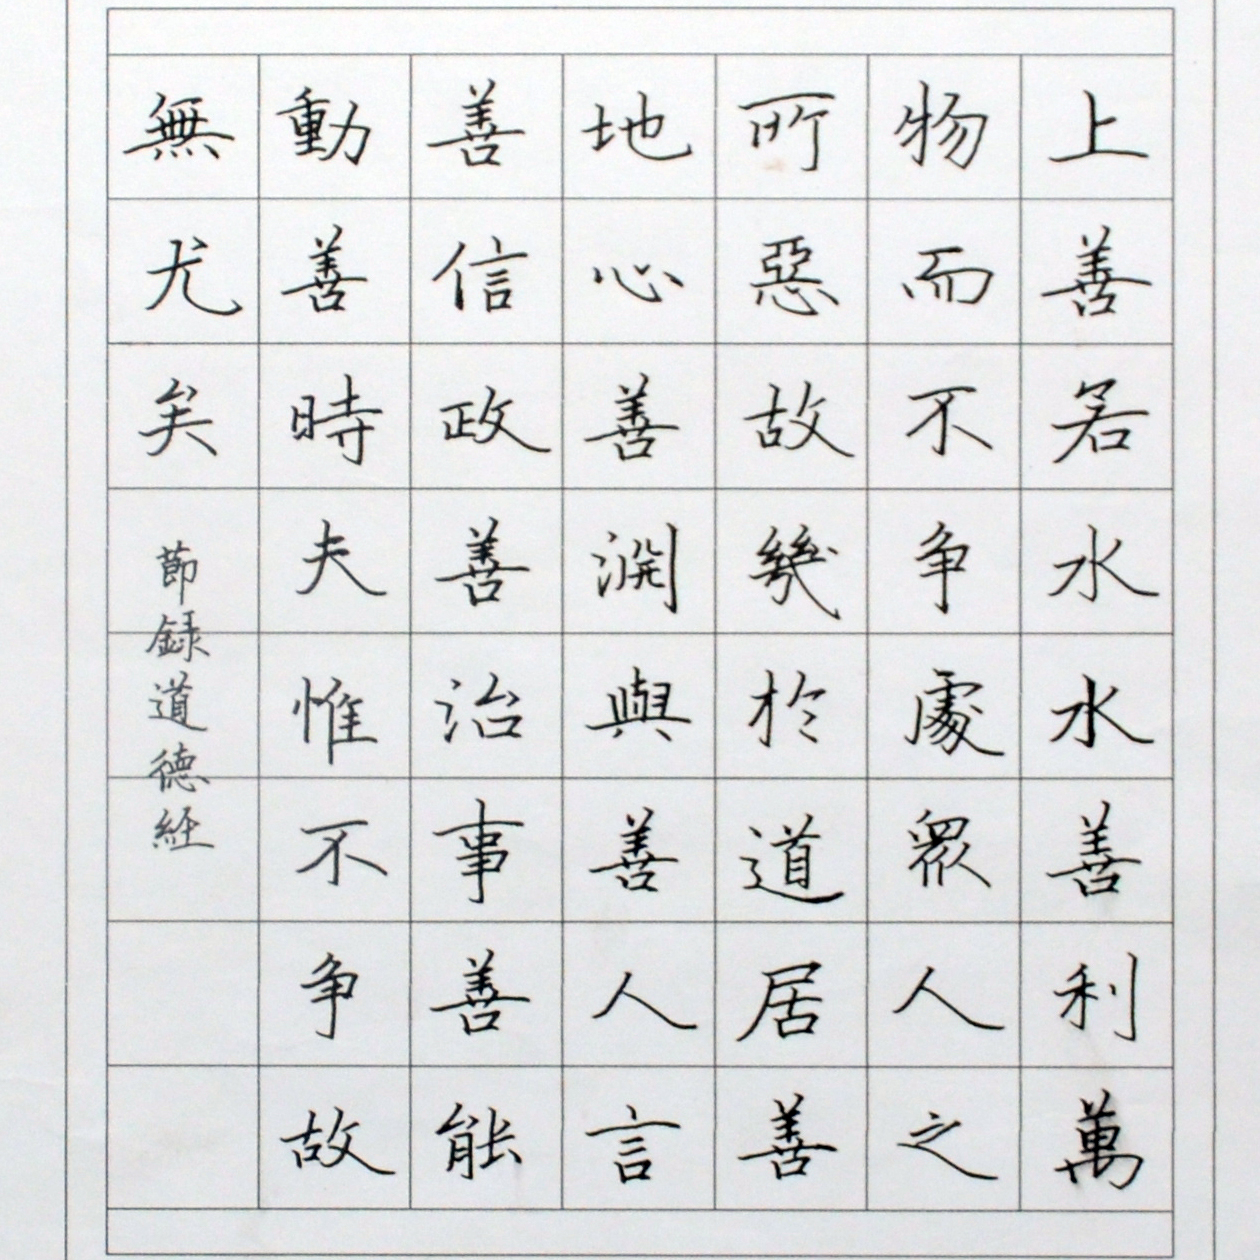 上善若水水善利萬
物而不争處眾人之
所惡故幾於道居善
地心善淵與善人言
善信政善治事善能
動善時夫惟不争故
無尤矣
節録道德経